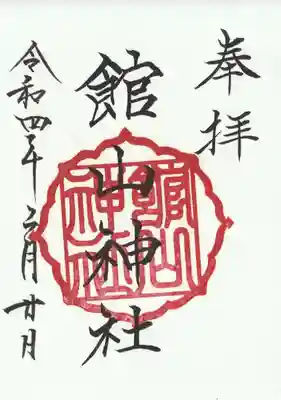 奉拝
館山神社
館山
神社
令和四年六月廿日